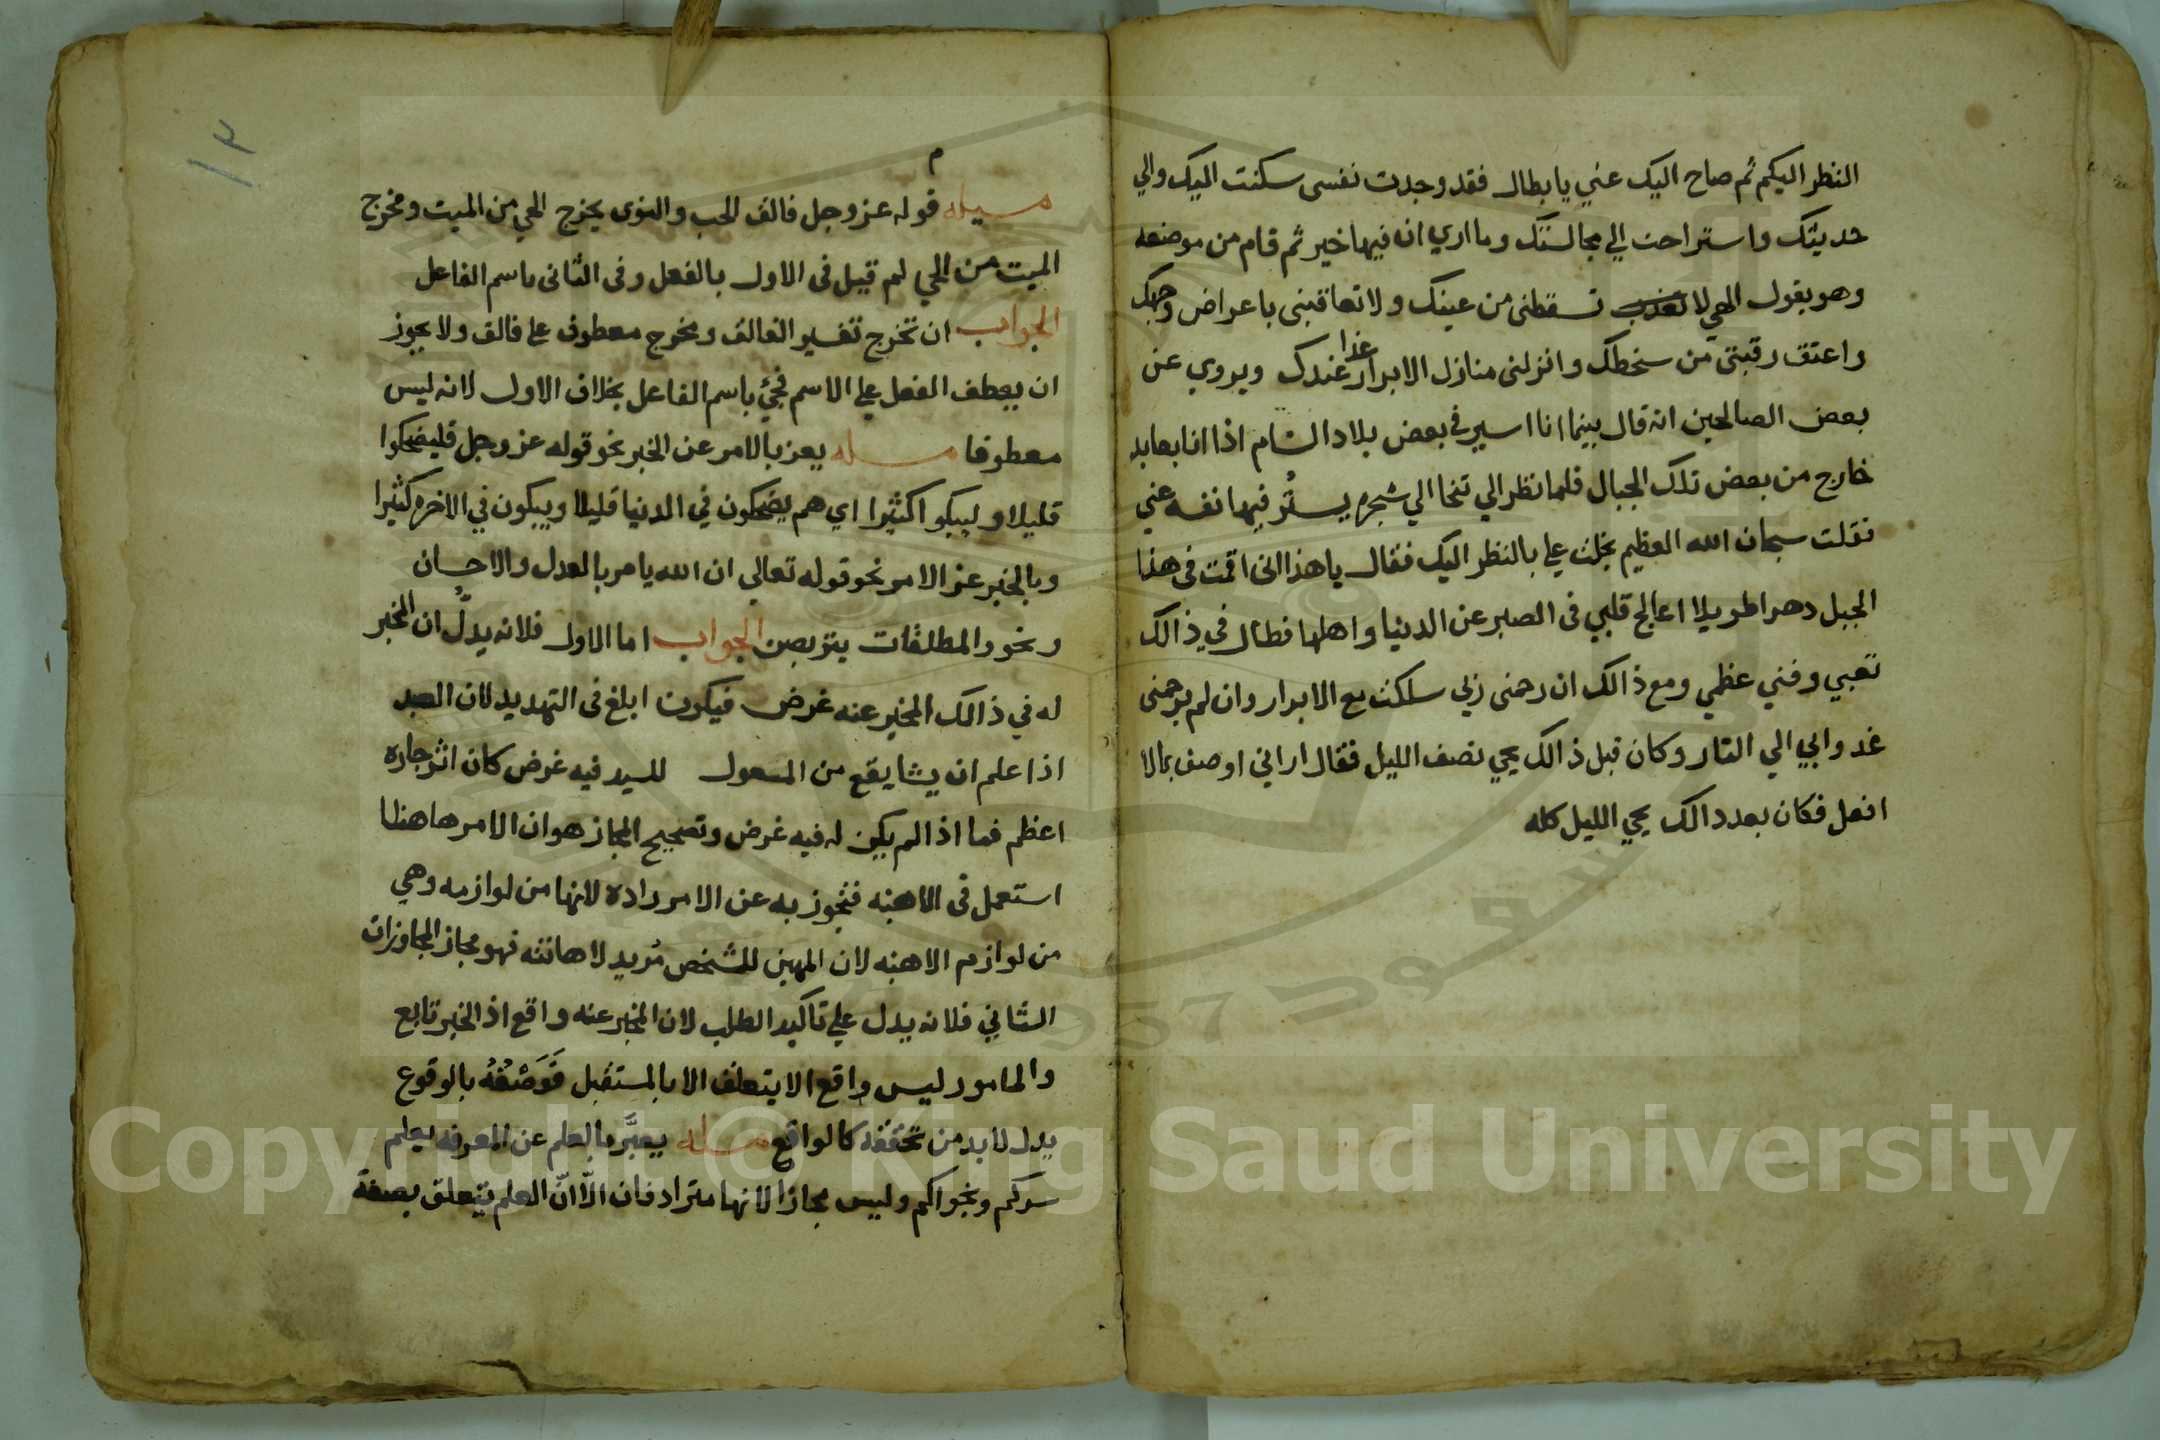 النظر اليكم ثم صاح اليك عني يا بطال فقد وجدت نفسى سكنت اليك والي
حديثك واستراحت الي مجالستك وما اري ان فيها خير ثم قام من موضعه
وهو يقول الهي لا تسقطنى من عينك ولا تعاقبنى باعراض وجهك
واعتق رقبتى من سخطك وانزلنى منازل الابرار غدا عندك ويروي عن
بعض الصالحين انه قال بينما انا اسير في بعض بلاد الشام اذا انا بعابد
خارج من بعض تلك الجبال فلما نظر الي تنحا الي شجره يستُر فيها نفسه عني
فقلت سبحان الله العظيم بخلت علي بالنظر اليك فقال يا هذا انى اقمت فى هذا
الجبل دهرا طويلا اعالج قلبي فى الصبر عن الدنيا واهلها فطال في ذالك
تعبي وفني عظمي ومع ذالك ان رحمنى ربي سلكت مع الابرار وان لم يرحمنى
غدوا بي الي النار وكان قبل ذالك يحي نصف الليل فقال اراني اوصف بمالا
افعل فكان بعد ذالك يحي الليل كله
١٣
م
مسيله قوله عز وجل فالق الحب والنوى يخرج الحي من الميت ومخرج
الميت من الحي لم قيل فى الاول بالفعل وفى الثانى باسم الفاعل
الجواب ان تخرج تفسير الفالق ومخرج معطوف علي فالق ولا يجوز
ان يعطف الفعل علي الاسم فجئ باسم الفاعل بخلاف الاول لانه ليس
معطوفا مسله يعز بالامر عن الخبر نحو قوله عز وجل فليضحكوا
قليلا وليبكوا كثيرا اي هم يضحكون في الدنيا قليلا ويبكون في الاخره كثيرا
وبالخبر عن الامر نحو قوله تعالي ان الله يامر بالعدل والاحسان
ونحو والمطلقات يتربصن الجواب اما الاول فلانه يدلّ ان المخبر
له في ذالك المخبر عنه غرض فيكون ابلغ فى التهديد لان العبد
اذا علم ان يشا يقع من المسول للسيد فيه غرض كان اثر جاره
اعظم فما اذا لم يكن له فيه غرض وتصحيح المجاز هو ان الامر هاهنا
استعمل فى الاهنه فتجوز به عن الامر راده لانها من لوازمه وهي
من لوازم الاهنه لان المهين للشخص مُريد لاهانته فهو مجاز المجاوزات
الثاني فلانه يدل علي تاكيد الطلب لان المخبر عنه واقع اذ الخبر تابع
والمامور ليس واقع لا يتعلق الا بالمستقبل فَوَصْفهُ بالوقوع
يدل لابد من تحققه كالواقع مسله يعبَّر بالعلم عن المعرفه يعلم
سركم ونجواكم وليس مجازا لانها مترادفان الاّ انّ العلم يتعلق بصفة
Copyright © King Saud University
1957